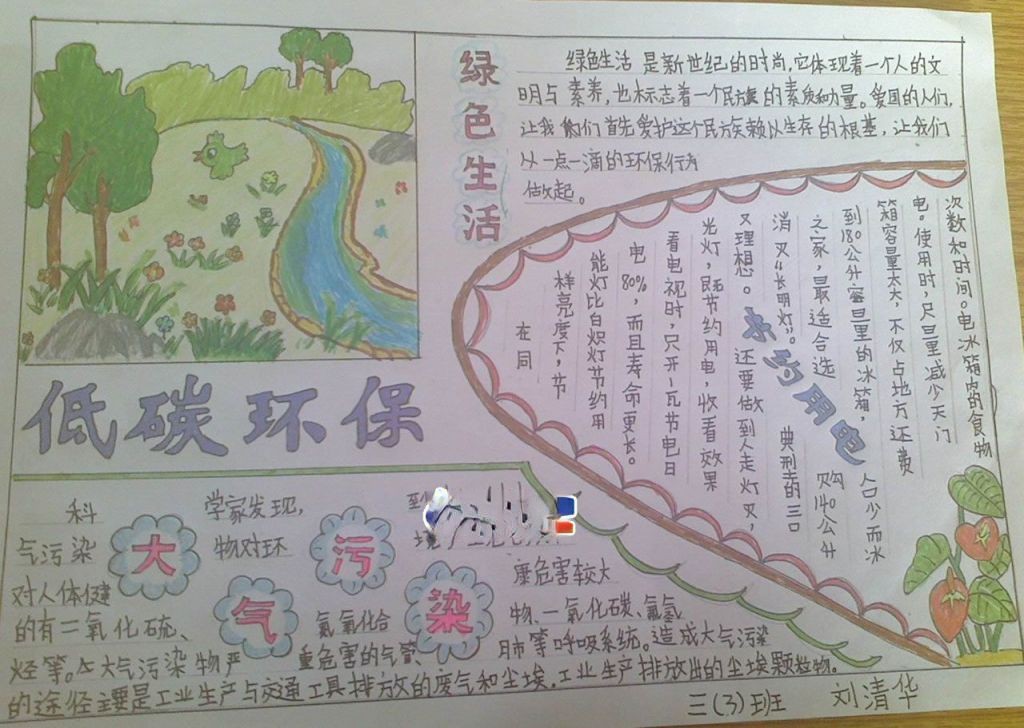 绿色生活
绿色生活 是新世纪的时尚,它体现着一个人的文
明与 素养,也标志着一个民族的素质和力量。爱国的人们,
让我们首先爱护这个民族赖以生存的根基,让我们
以一点一滴的环保行为
做起。
低碳环保
节约用电
在同
样亮度下,节
能灯比白炽灯节约用
电80%,而且寿命更长。
看电视时,只开一瓦节电日
光灯,既节约用电,收看效果
又理想。还要做到人走灯灭,
消灭“长明灯”。典型的三口
之家,最适合选购140公升
到180公升容量的冰箱,人口少而冰
箱容量太大,不仅占地方还费
电。使用时,尽量减少天门
次数和时间。电冰箱内的食物
大气污染
科学家发现,到
气污染物对环境
对人体健康危害较大
的有二氧化硫、氮氧化合物、一氧化碳、氟氢
烃等。大气污染物严重危害的气管、肺等呼吸系统。造成大气污染
的途径主要是工业生产与交通工具排放的废气和尘埃,工业生产排放出的尘埃颗粒物。
三(3)班 刘清华